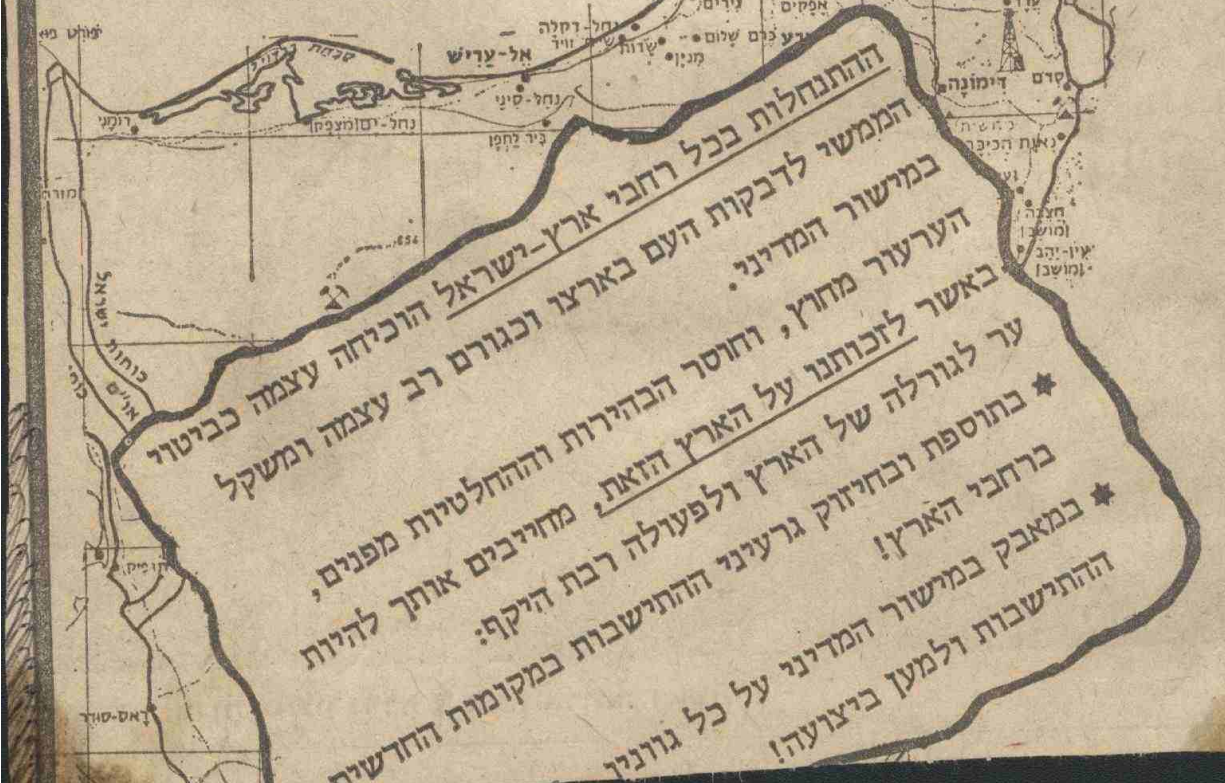 פורט
אל-עריש
נחל-דקלה
שדות
כרם שלום
נירים
אפקים
מגיון
סבחת
רומני
נחל-ים
נחל-סיני
ביר לחפן
דימונה
סדם
נאות הכיכר
חצבה
(מושב)
עין-יהב
(מושב)
656
כוחות ישראל
כוחות
או"ם
ראס-סודר
ההתנחלות בכל רחבי ארץ-ישראל הוכיחה עצמה כביטוי
הממשי לדבקות העם בארצו וכגורם רב עצמה ומשקל
במישור המדיני.
הערעור מחוץ, וחוסר הבהירות וההחלטיות מפנים,
באשר לזכותנו על הארץ הזאת, מחייבים אותך להיות
ער לגורלה של הארץ ולפעולה רבת היקף:
✶ בתוספת ובחיזוק גרעיני ההתישבות במקומות החדשים
ברחבי הארץ!
✶ במאבק במישור המדיני על כל גווניו
ההתישבות ולמען ביצועה!